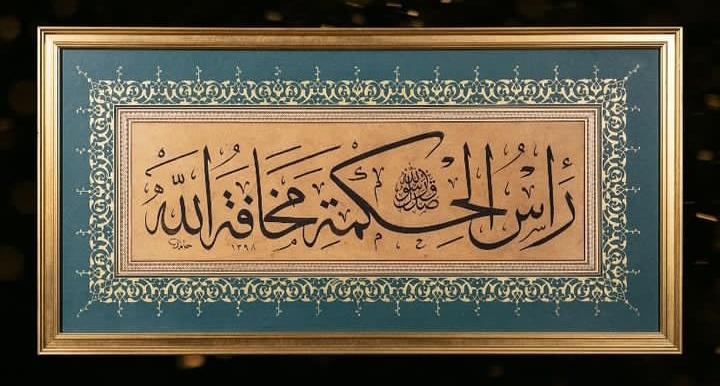 رَأْسُ الْحِكْمَةِ مَخَافَةُ اللّٰه
صدق رسول الله
حامد ١٣٩٨